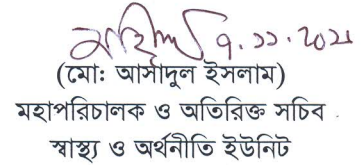 ৭.১১.২০২১
(মো: আসাদুল ইসলাম)
মহাপরিচালক ও অতিরিক্ত সচিব
স্বাস্থ্য ও অর্থনীতি ইউনিট